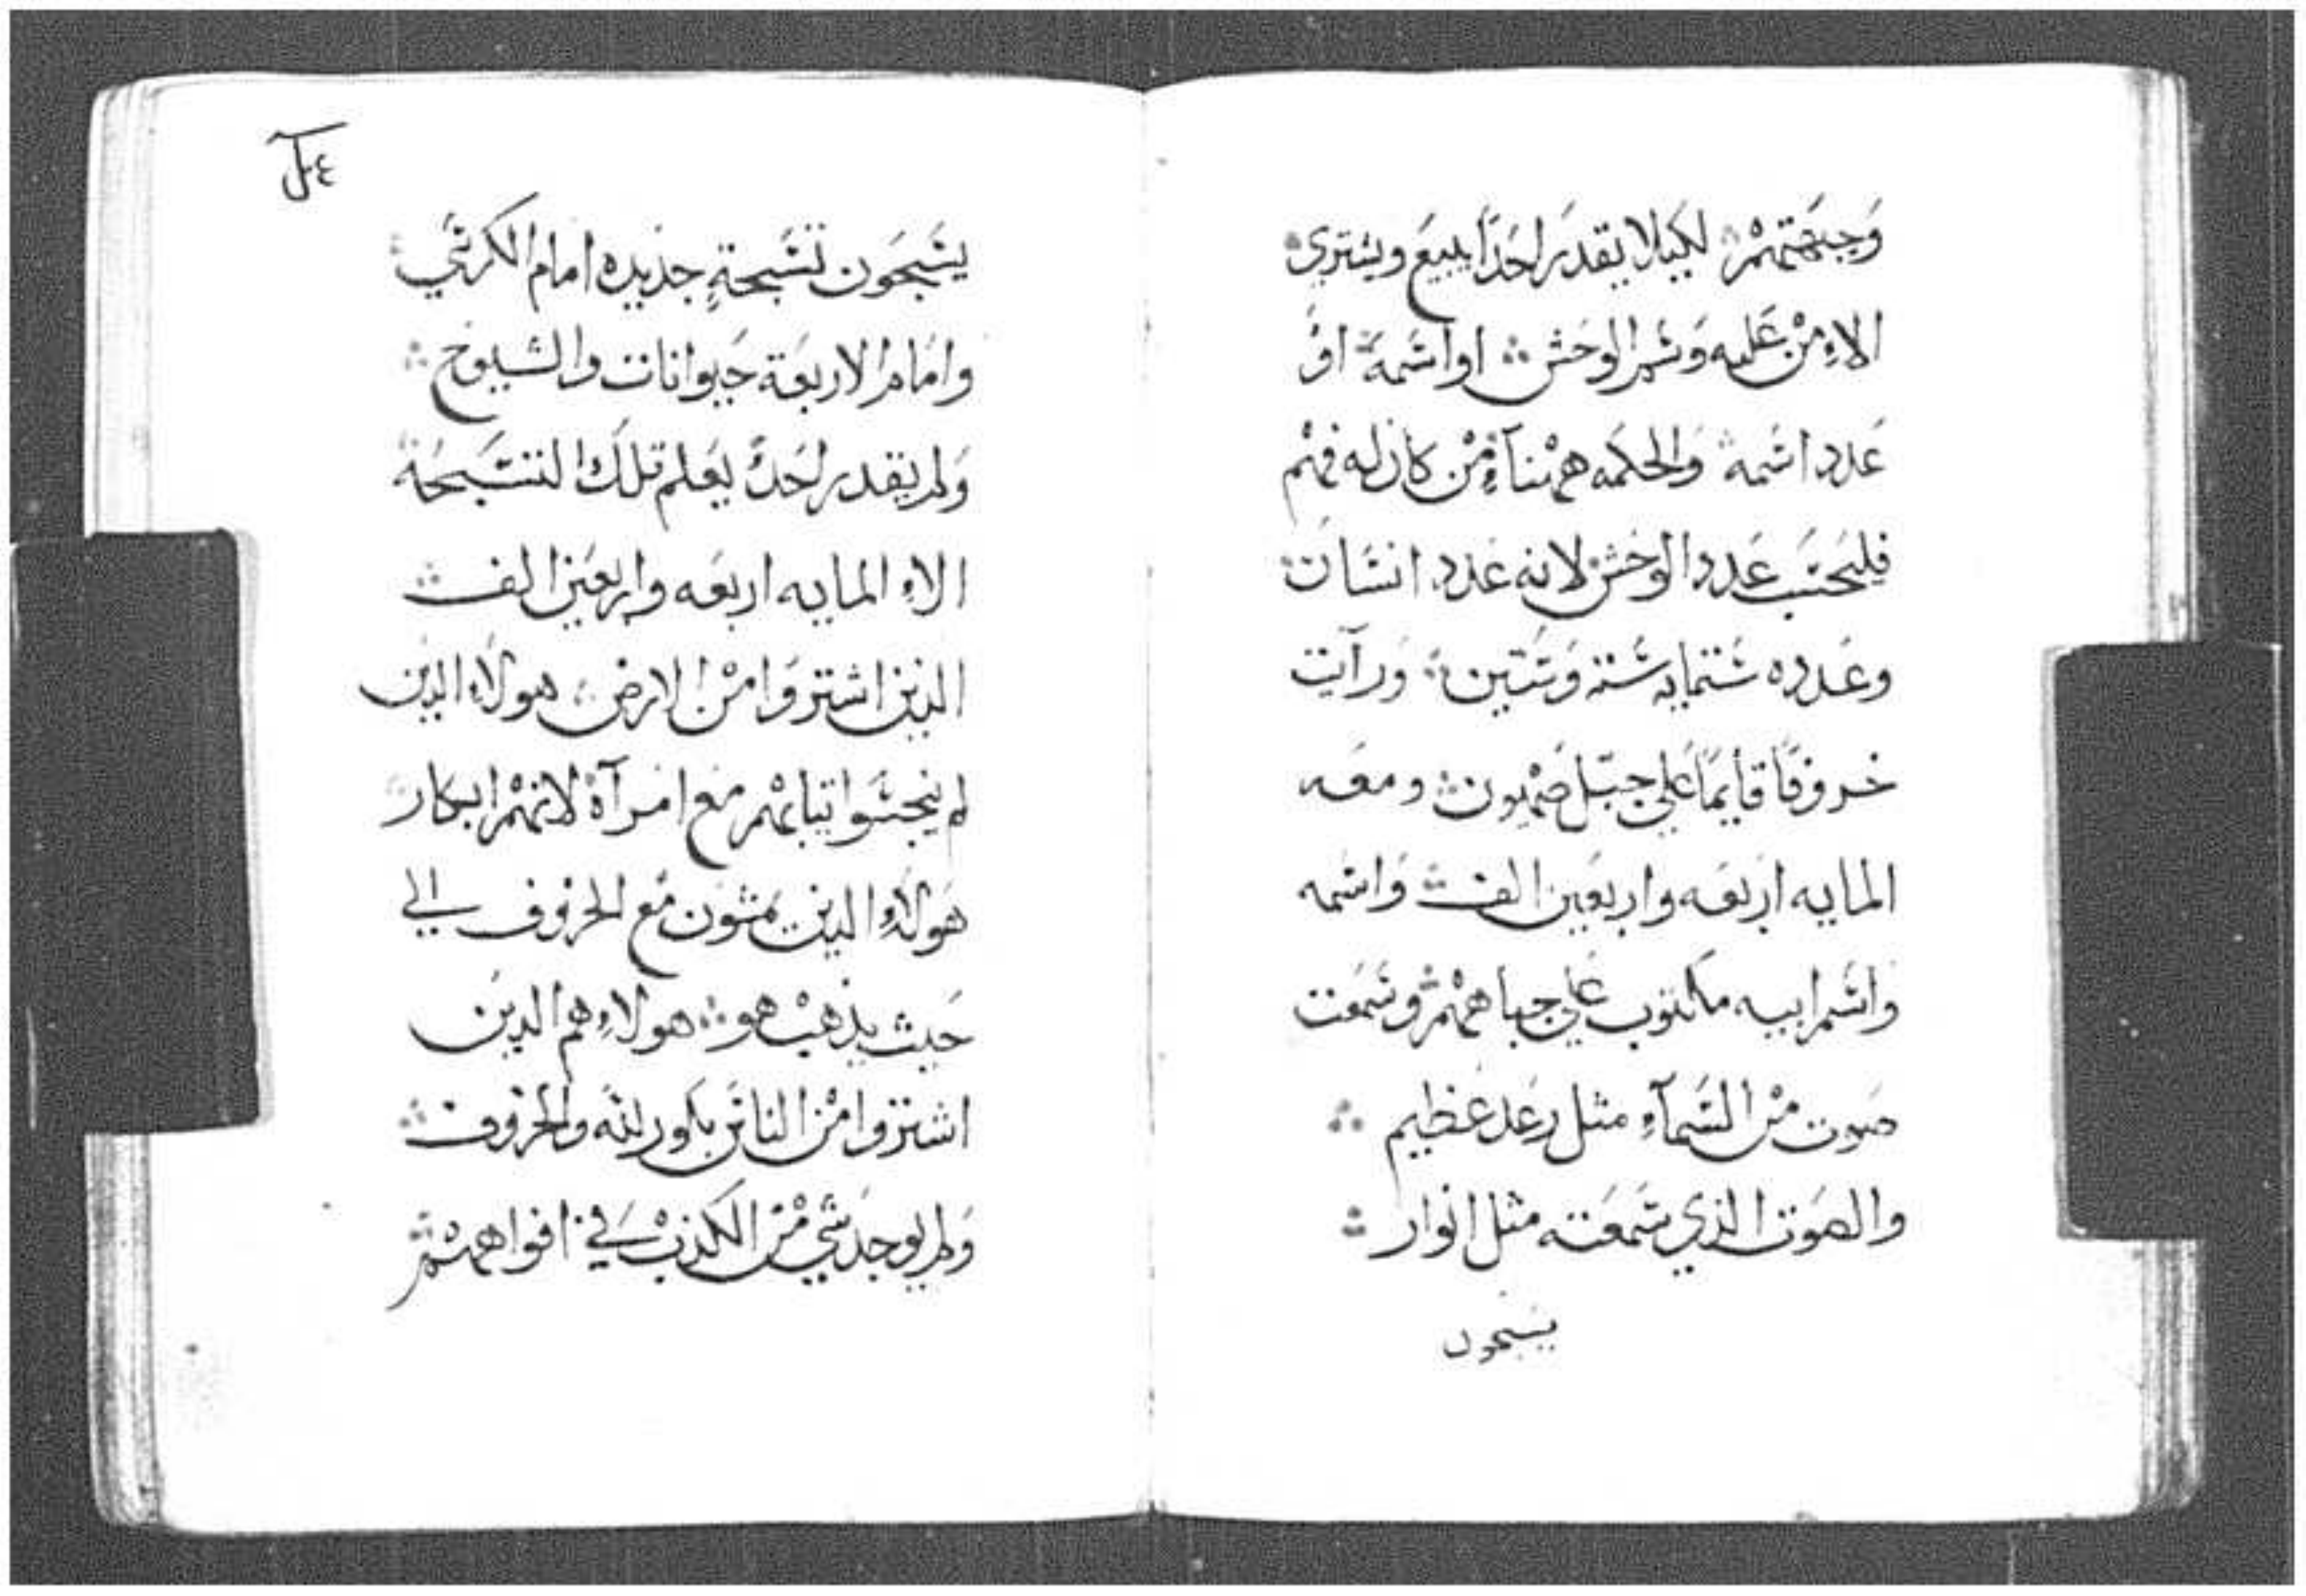 وَجبَهَتهمْ لكيلا يقدر احَدًا يبيعَ ويشتري
الاءِ منْ عَليه وَسْم الوحَش او اسَمة اوْ
عَدد اسَمه وَالحكمه همْنآءِ منْ كان له فهْم
فليحَسَب عَدد الوحَش لانه عَدد انسَان
وعَدده سَتمايه سَته وَسَتين وَرآيت
خروفًا قايمًا عَلي جبَل صَهْيون ومعَه
المايه اربَعه واربعَين الف وَاسَمه
واسَم ابيه مكتوب عَلي جباههْم وسَمَعت
صَوت منْ السَمآءِ مثل رعَد عَظيم
والصَوت الذي سَمعَته مثل انوار
يسبحون
يسَبحَون تسَبحةٍ جديده امام الكرسَي
وامَام الاربعَة حَيوانات والشيوخ
وَلم يقدر احَدً يعَلم تلك التسَبحَة
الاءِ المايه اربعَه واربعَين الف
الدين اشتروَا منْ الارض هولاءِ الدين
لم ينجسَوا تيابهمْ مَع امرآة لانهمْ ابكار
هَولاءِ الدين يمشوَن مَع الخروف الي
حَيث يذهَبْ هو هولاءِ هم الدين
اشتروا منْ الناسَ بكور لله والخروف
وَلم يوجَد شي منْ الكذبْ في افواههمْ